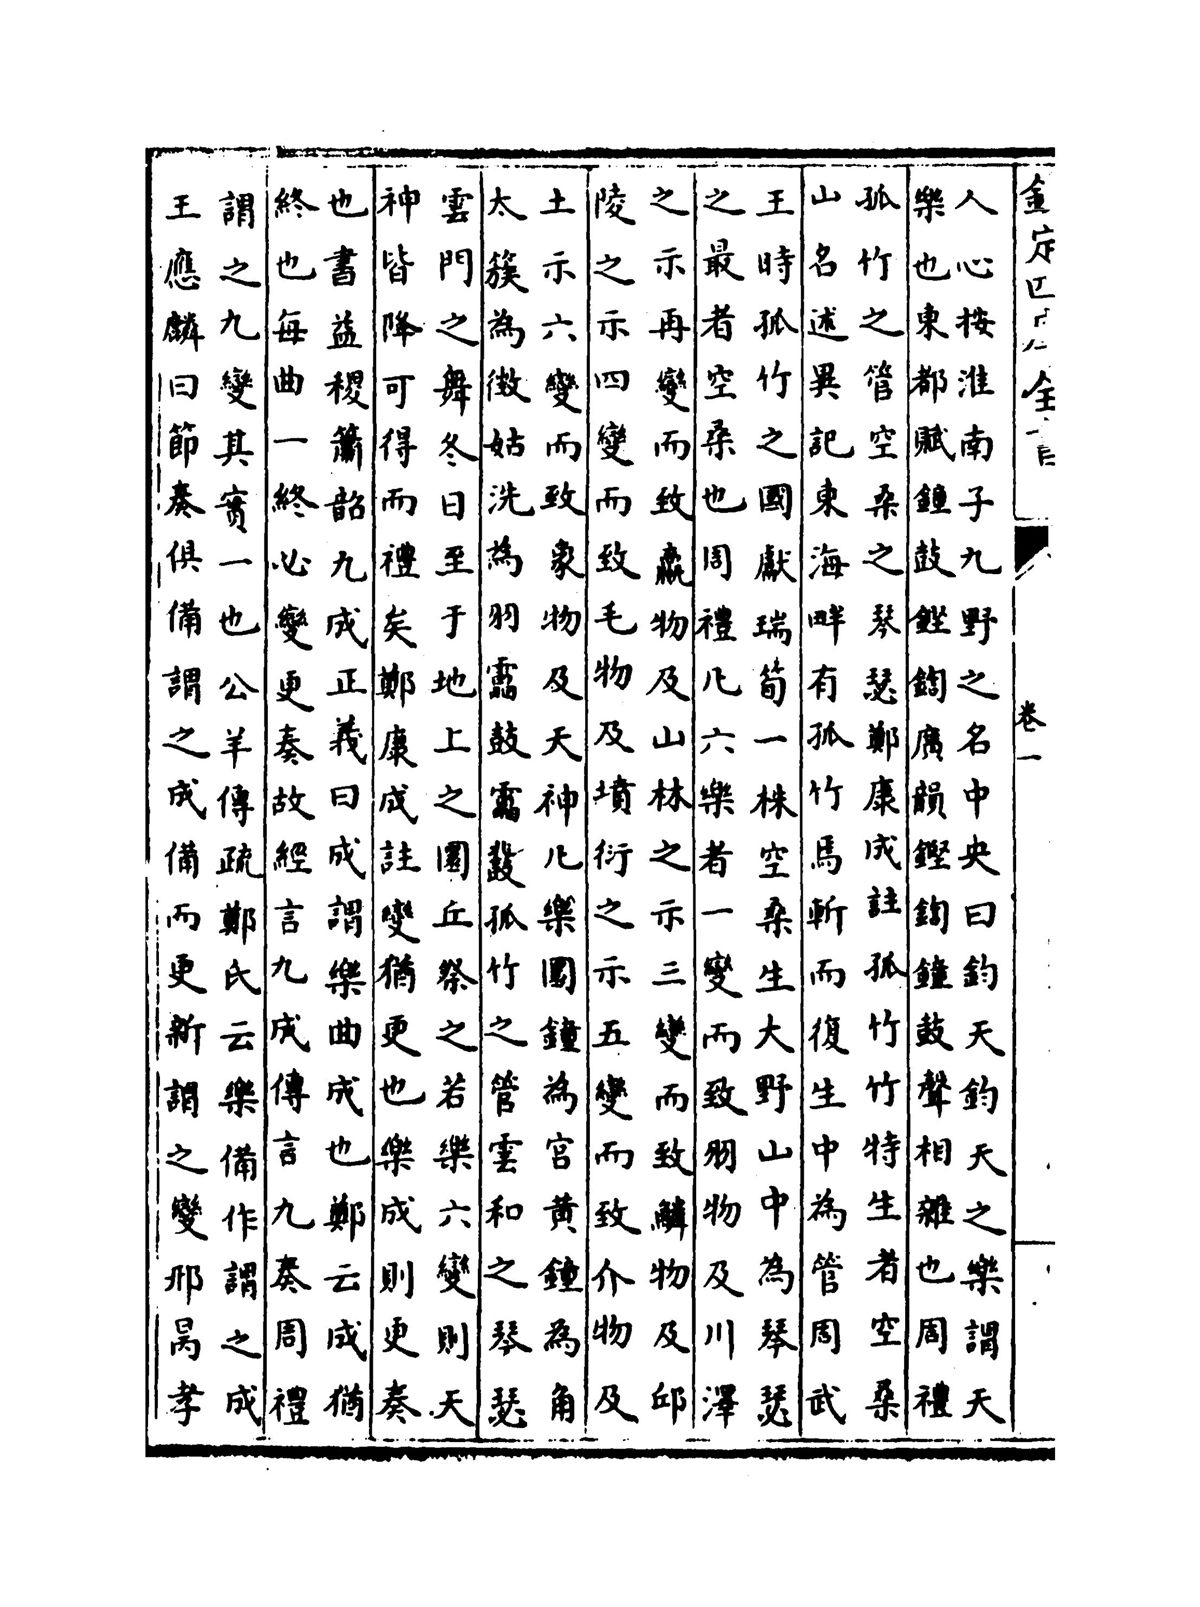 欽定四庫全書
卷一
人心按淮南子九野之名中央曰鈞天鈞天之樂謂天
樂也東都賦鐘鼓鏗鍧廣韻鏗鍧鐘鼓聲相雜也周禮
孤竹之管空桑之琴瑟鄭康成註孤竹竹特生者空桑
山名述異記東海畔有孤竹焉斬而復生中為管周武
王時孤竹之國獻瑞筍一株空桑生大野山中為琴瑟
之最者空桑也周禮凡六樂者一變而致羽物及川澤
之示再變而致臝物及山林之示三變而致鱗物及邱
陵之示四變而致毛物及墳衍之示五變而致介物及
土示六變而致象物及天神凡樂圜鐘為宮黃鐘為角
太簇為徵姑洗為羽靁鼓靁鼗孤竹之管雲和之琴瑟
雲門之舞冬日至于地上之圜丘祭之若樂六變則天
神皆降可得而禮矣鄭康成註變猶更也樂成則更奏
也書益稷簫韶九成正義曰成謂樂曲成也鄭云成猶
終也每曲一終必變更奏故經言九成傳言九奏周禮
謂之九變其實一也公羊傳疏鄭氏云樂備作謂之成
王應麟曰節奏俱備謂之成備而更新謂之變邢昺孝